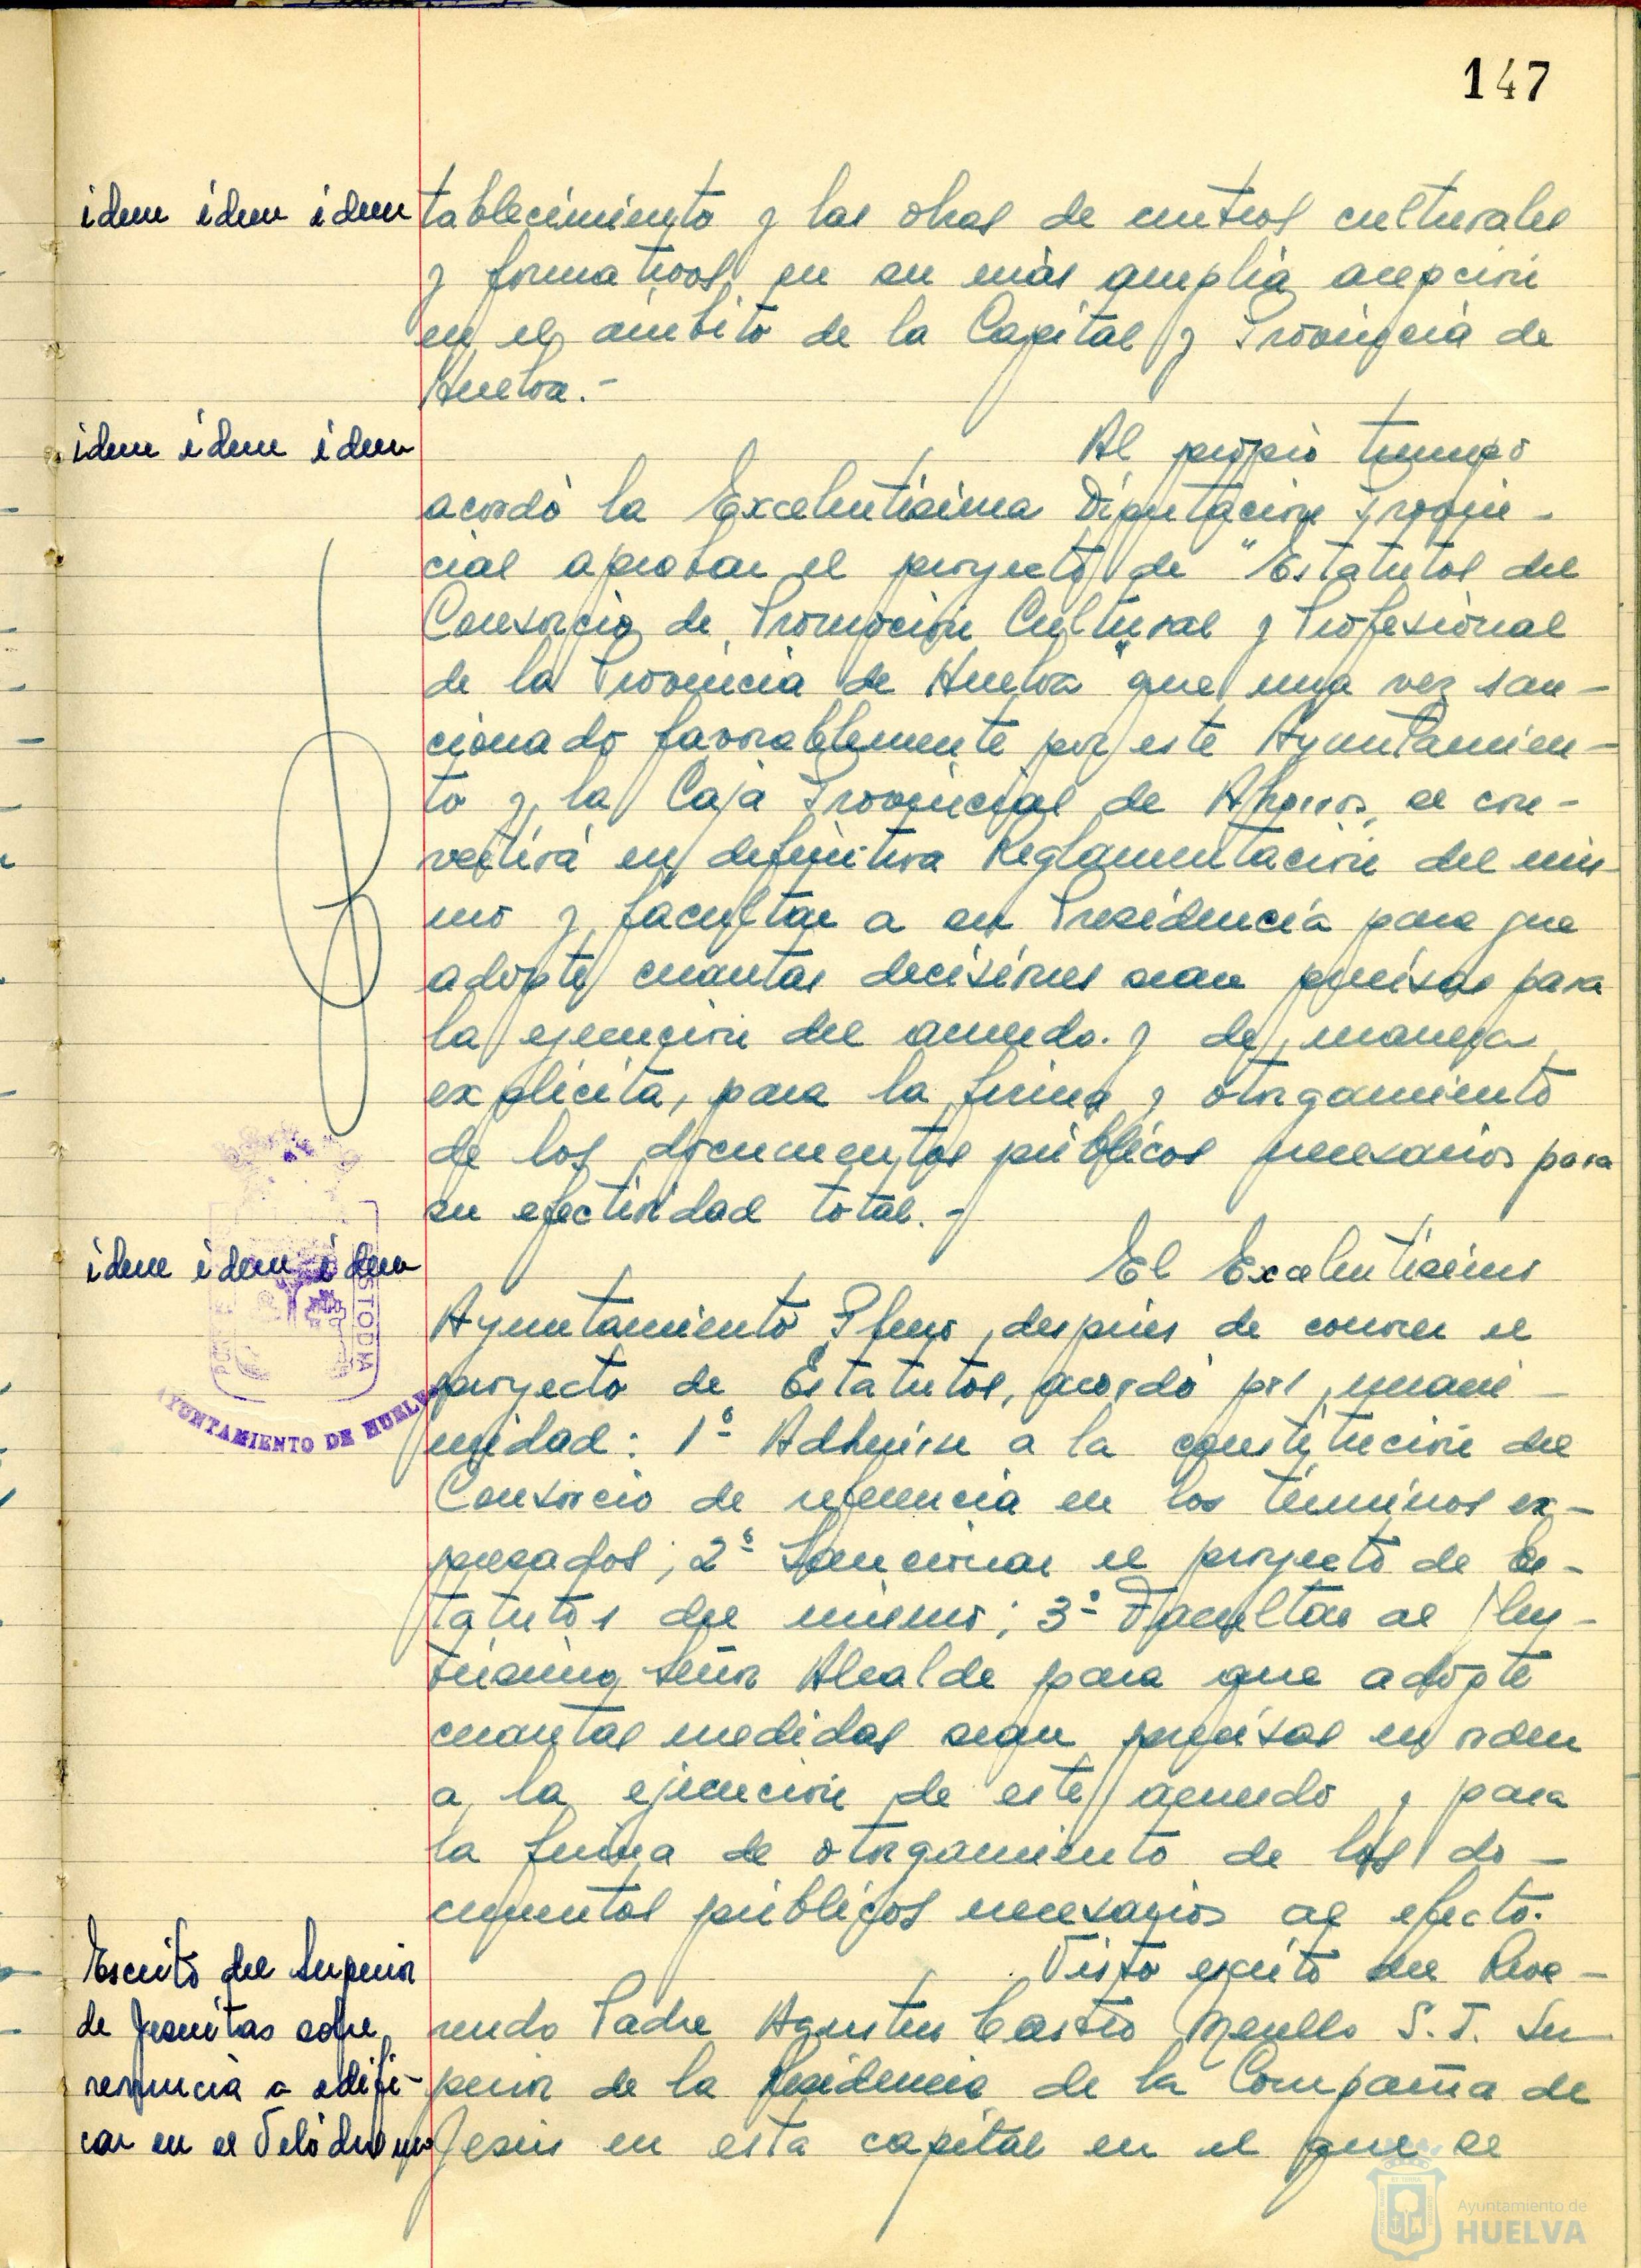 147
idem idem idem
tablecimiento y las obras de centros culturales
y formativos, en su más amplia acepción
en el ámbito de la Capital y Provincia de
Huelva.-
idem idem idem
Al propio tiempo
acordó la Excelentísima Diputación Provin-
cial aprobar el proyecto de "Estatutos del
Consorcio de Promoción Cultural y Profesional
de la Provincia de Huelva" que una vez san-
cionado favorablemente por este Ayuntamien-
to y la Caja Provincial de Ahorros, se con-
vertirá en definitiva Reglamentación del mis-
mo y facultar a su Presidencia para que
adopte cuantas decisiones sean precisas para
la ejecución del acuerdo. y de manera
explícita, para la firma y otorgamiento
de los documentos públicos necesarios para
su efectividad total.-
idem idem idem
El Excelentísimo
Ayuntamiento Pleno, después de conocer el
proyecto de Estatutos, acordó por unani-
midad: 1º Adherirse a la constitución del
Consorcio de referencia en los términos ex-
presados; 2º Sancionar el proyecto de Es-
tatutos del mismo; 3º Facultar al Ilus-
trísimo Señor Alcalde para que adopte
cuantas medidas sean precisas en orden
a la ejecución de este acuerdo y para
la firma de otorgamiento de los do-
cumentos públicos necesarios al efecto.
Escrito del Superior
de Jesuitas sobre
renuncia a edifi-
car en el Velódromo
Visto escrito del Reve-
rendo Padre Agustín Castro S. J. Su-
perior de la Residencia de la Compañía de
Jesús en esta capital en el que se
AYUNTAMIENTO DE HUELVA
Ayuntamiento de
HUELVA